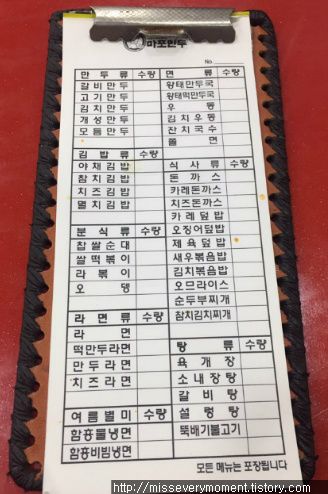 마포만두
No.
만두류 수량
갈비만두
고기만두
김치만두
개성만두
모듬만두
김밥류 수량
야채김밥
참치김밥
치즈김밥
멸치김밥
분식류 수량
찹쌀순대
쌀떡볶이
라볶이
오뎅
라면류 수량
라면
떡만두라면
만두라면
치즈라면
여름별미 수량
함흥물냉면
함흥비빔냉면
면류 수량
황태만두국
황태떡만두국
우동
김치우동
잔치국수
쫄면
식사류 수량
돈까스
카레돈까스
치즈돈까스
카레덮밥
오징어덮밥
제육덮밥
새우볶음밥
김치볶음밥
오므라이스
순두부찌개
참치김치찌개
탕류 수량
육개장
소내장탕
갈비탕
설렁탕
뚝배기불고기
모든 메뉴는 포장됩니다
http://misseverymoment.tistory.com